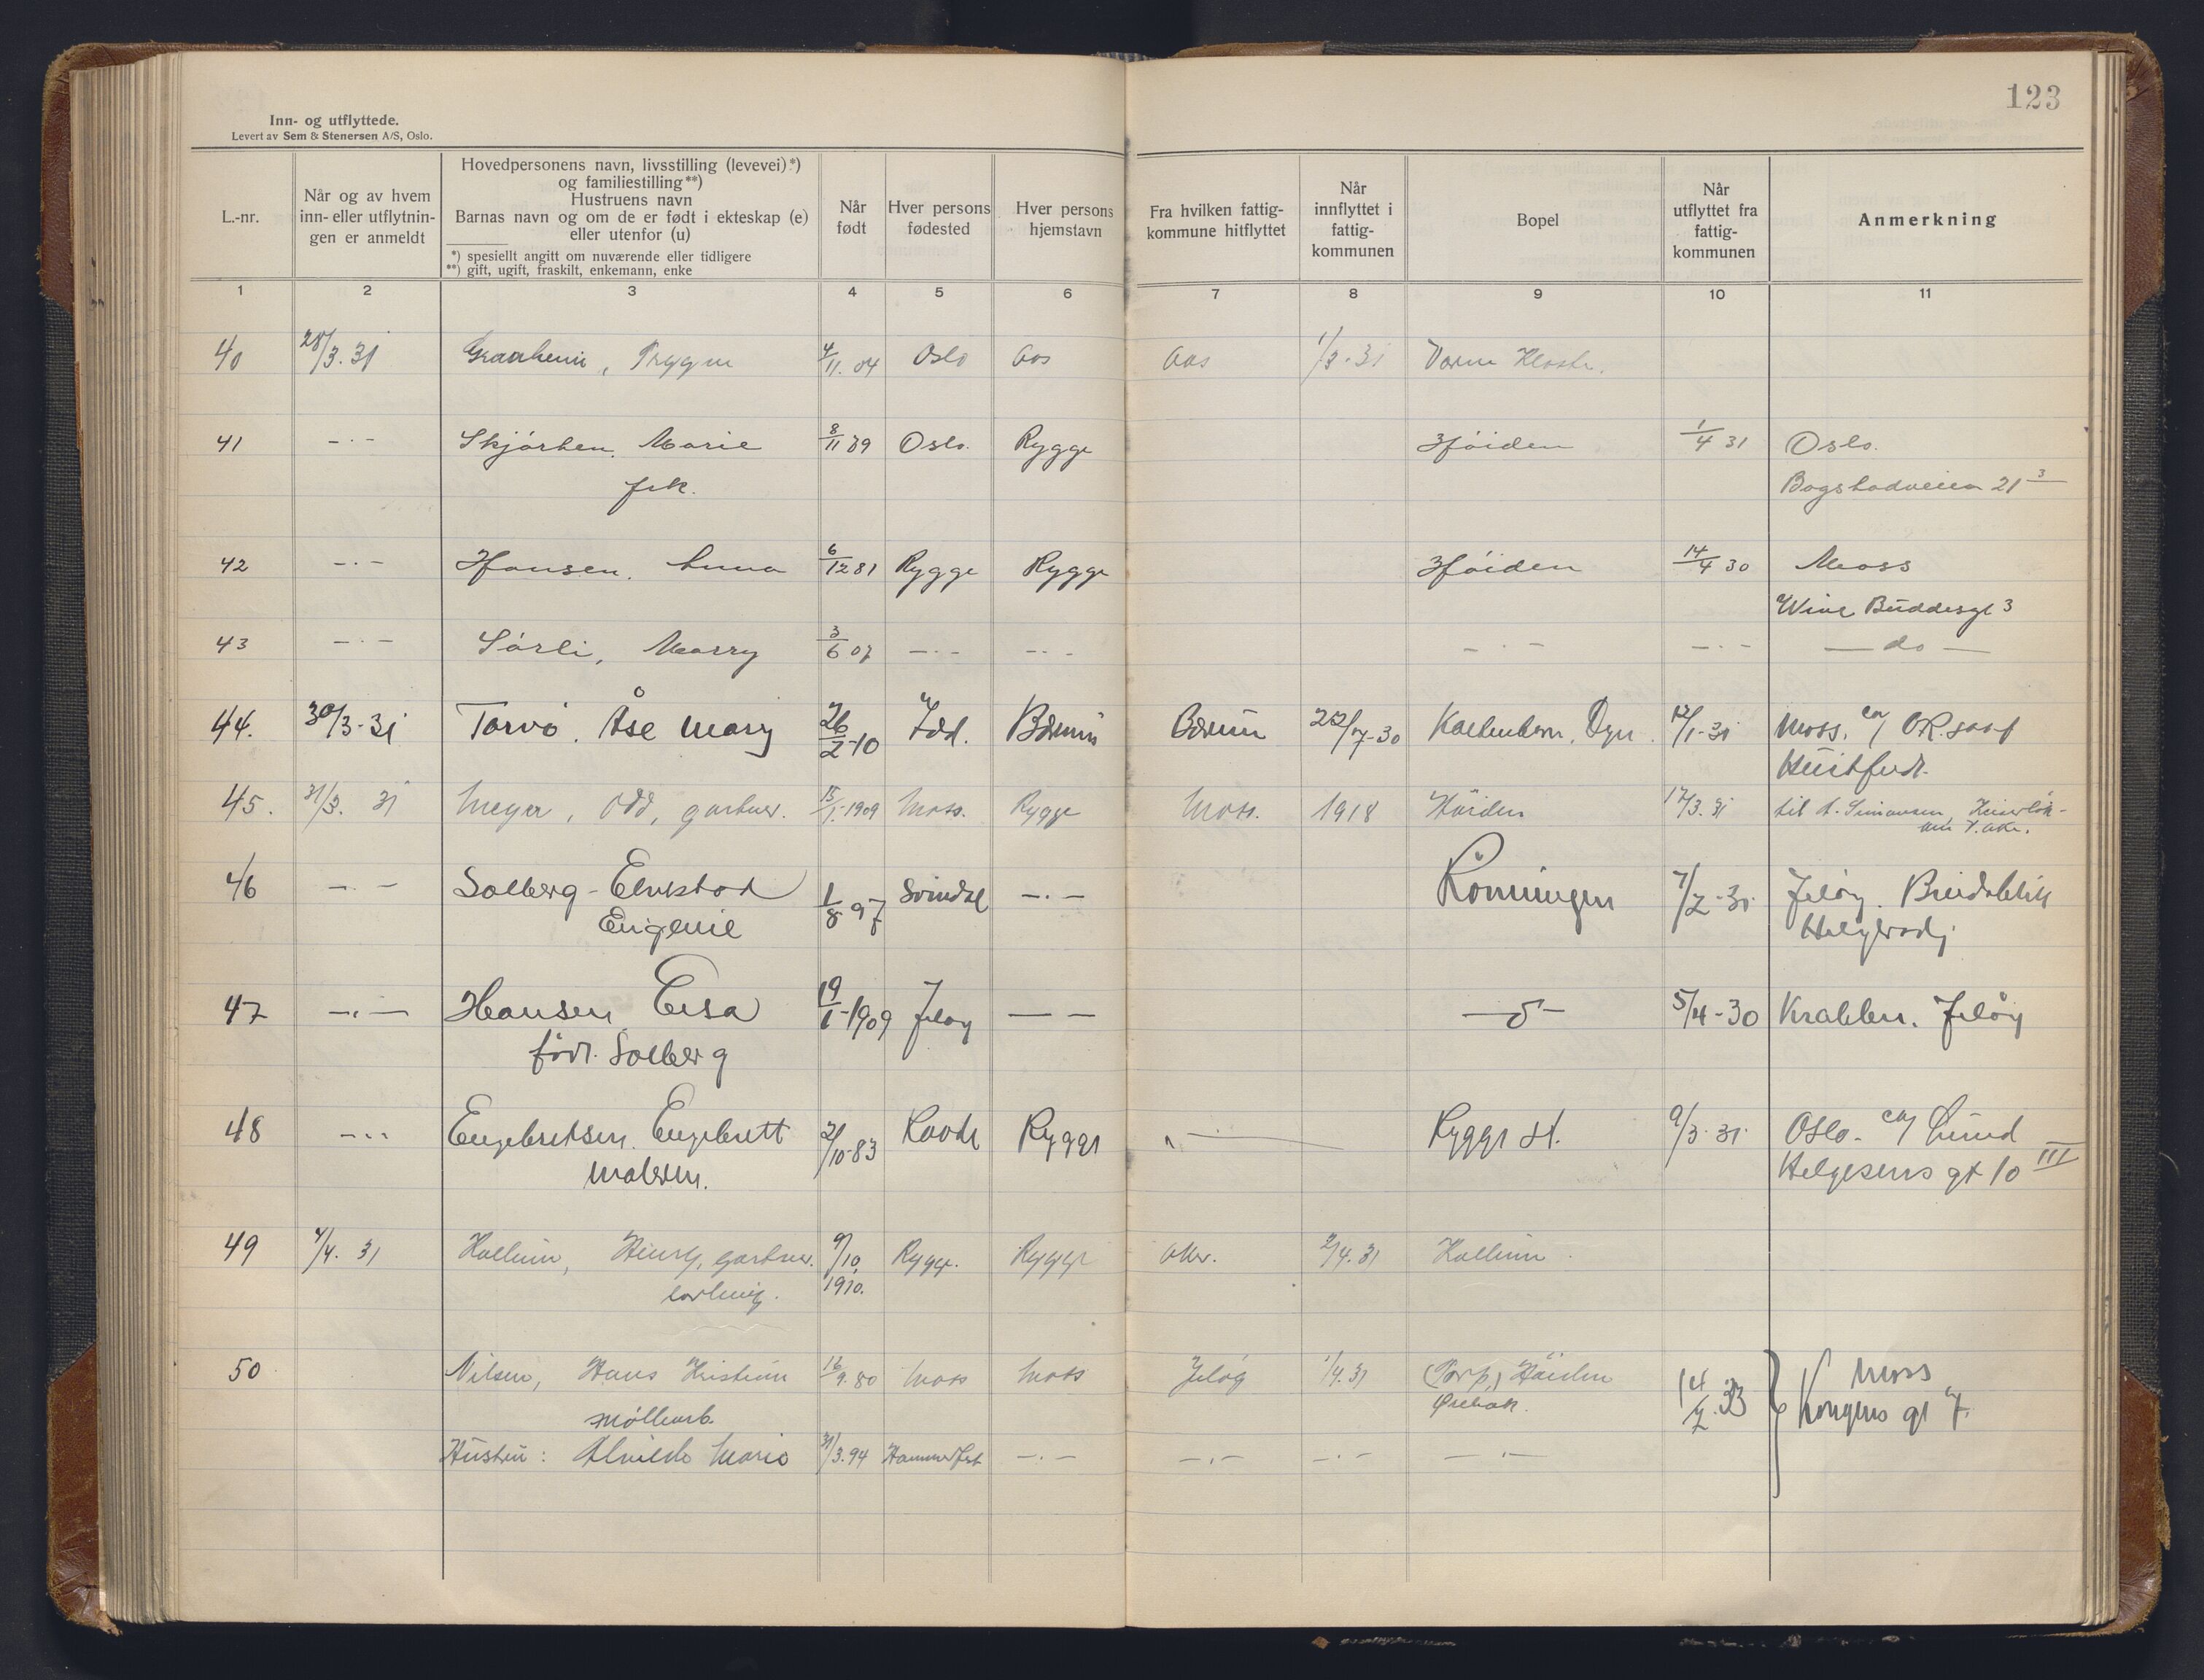 123
Inn- og utflyttede.
Levert av Sem & Stenersen A/S, Oslo.
L.-nr.
Når og av hvem
inn- eller utflytnin-
gen er anmeldt
Hovedpersonens navn, livsstilling (levevei)*)
og familiestilling**)
Hustruens navn
Barnas navn og om de er født i ekteskap (e)
eller utenfor (u)
*) spesiellt angitt om nuværende eller tidligere
**) gift, ugift, fraskilt, enkemann, enke
Når
født
Hver persons
fødested
Hver persons
hjemstavn
Fra hvilken fattig-
kommune hitflyttet
Når
innflyttet i
fattig-
kommunen
Bopel
Når
utflyttet fra
fattig-
kommunen
Anmerkning
1 2 3 4 5 6 7 8 9 10 11
40 28/3.31 Graaheim, Trygve 4/11.04 Oslo Aas Aas 1/3.31 Varne Kloster.
41 -·- Marie 8/11 89 Oslo. Rygge Høiden 1/4 31 Oslo.
frk. Bogstadveien 21 3
42 -·- Hansen, Anna 6/12 81 Rygge Rygge Høiden 14/4 30 Moss
Buddesgt 3
43 -·- Sørli, Marry 3/6 07 -·- -·- -·- -·- — do —
44. 30/3-31 Torvø, Åse Mary 26/2-10 Idd. Bærum Bærum 22/7-30 12/1-31 Moss.
45. 31/3. 31 Meyer, Odd, gartner. 15/1-1909 Moss. Rygge Moss. 1918 Høiden 17/3.31 til A. Simonsen,
46 -·- Solberg-Elvestad 1/8 97 Svindal -·- Rønningen 7/2-31 Jeløy. Breidablik
Eugenie
47 -·- Hansen, Elsa 19/1-1909 Jeløy — — 5/4-30 Krabben. Jeløy
født. Solberg
48 -·- Engebretsen. Engebrett 2/10-83 Raade Rygge Rygge st. 9/3-31 Oslo. c/o Lund
Helgesens gt 10 III
49 4/4. 31 Kallum, gartner 9/10. Rygge. Rygge Aker. 2/4.31 Kallum
1910.
50 Nilsen, Hans Kristian 16/9.80 Moss Moss Jeløy 1/4.31 (Torp,) Høiden 14/7.33 Moss
Møllearb. Kongens gt 7.
Hustru: Alvilde Marie 31/3.94 Hammerfest -·- -·- -·- -·-